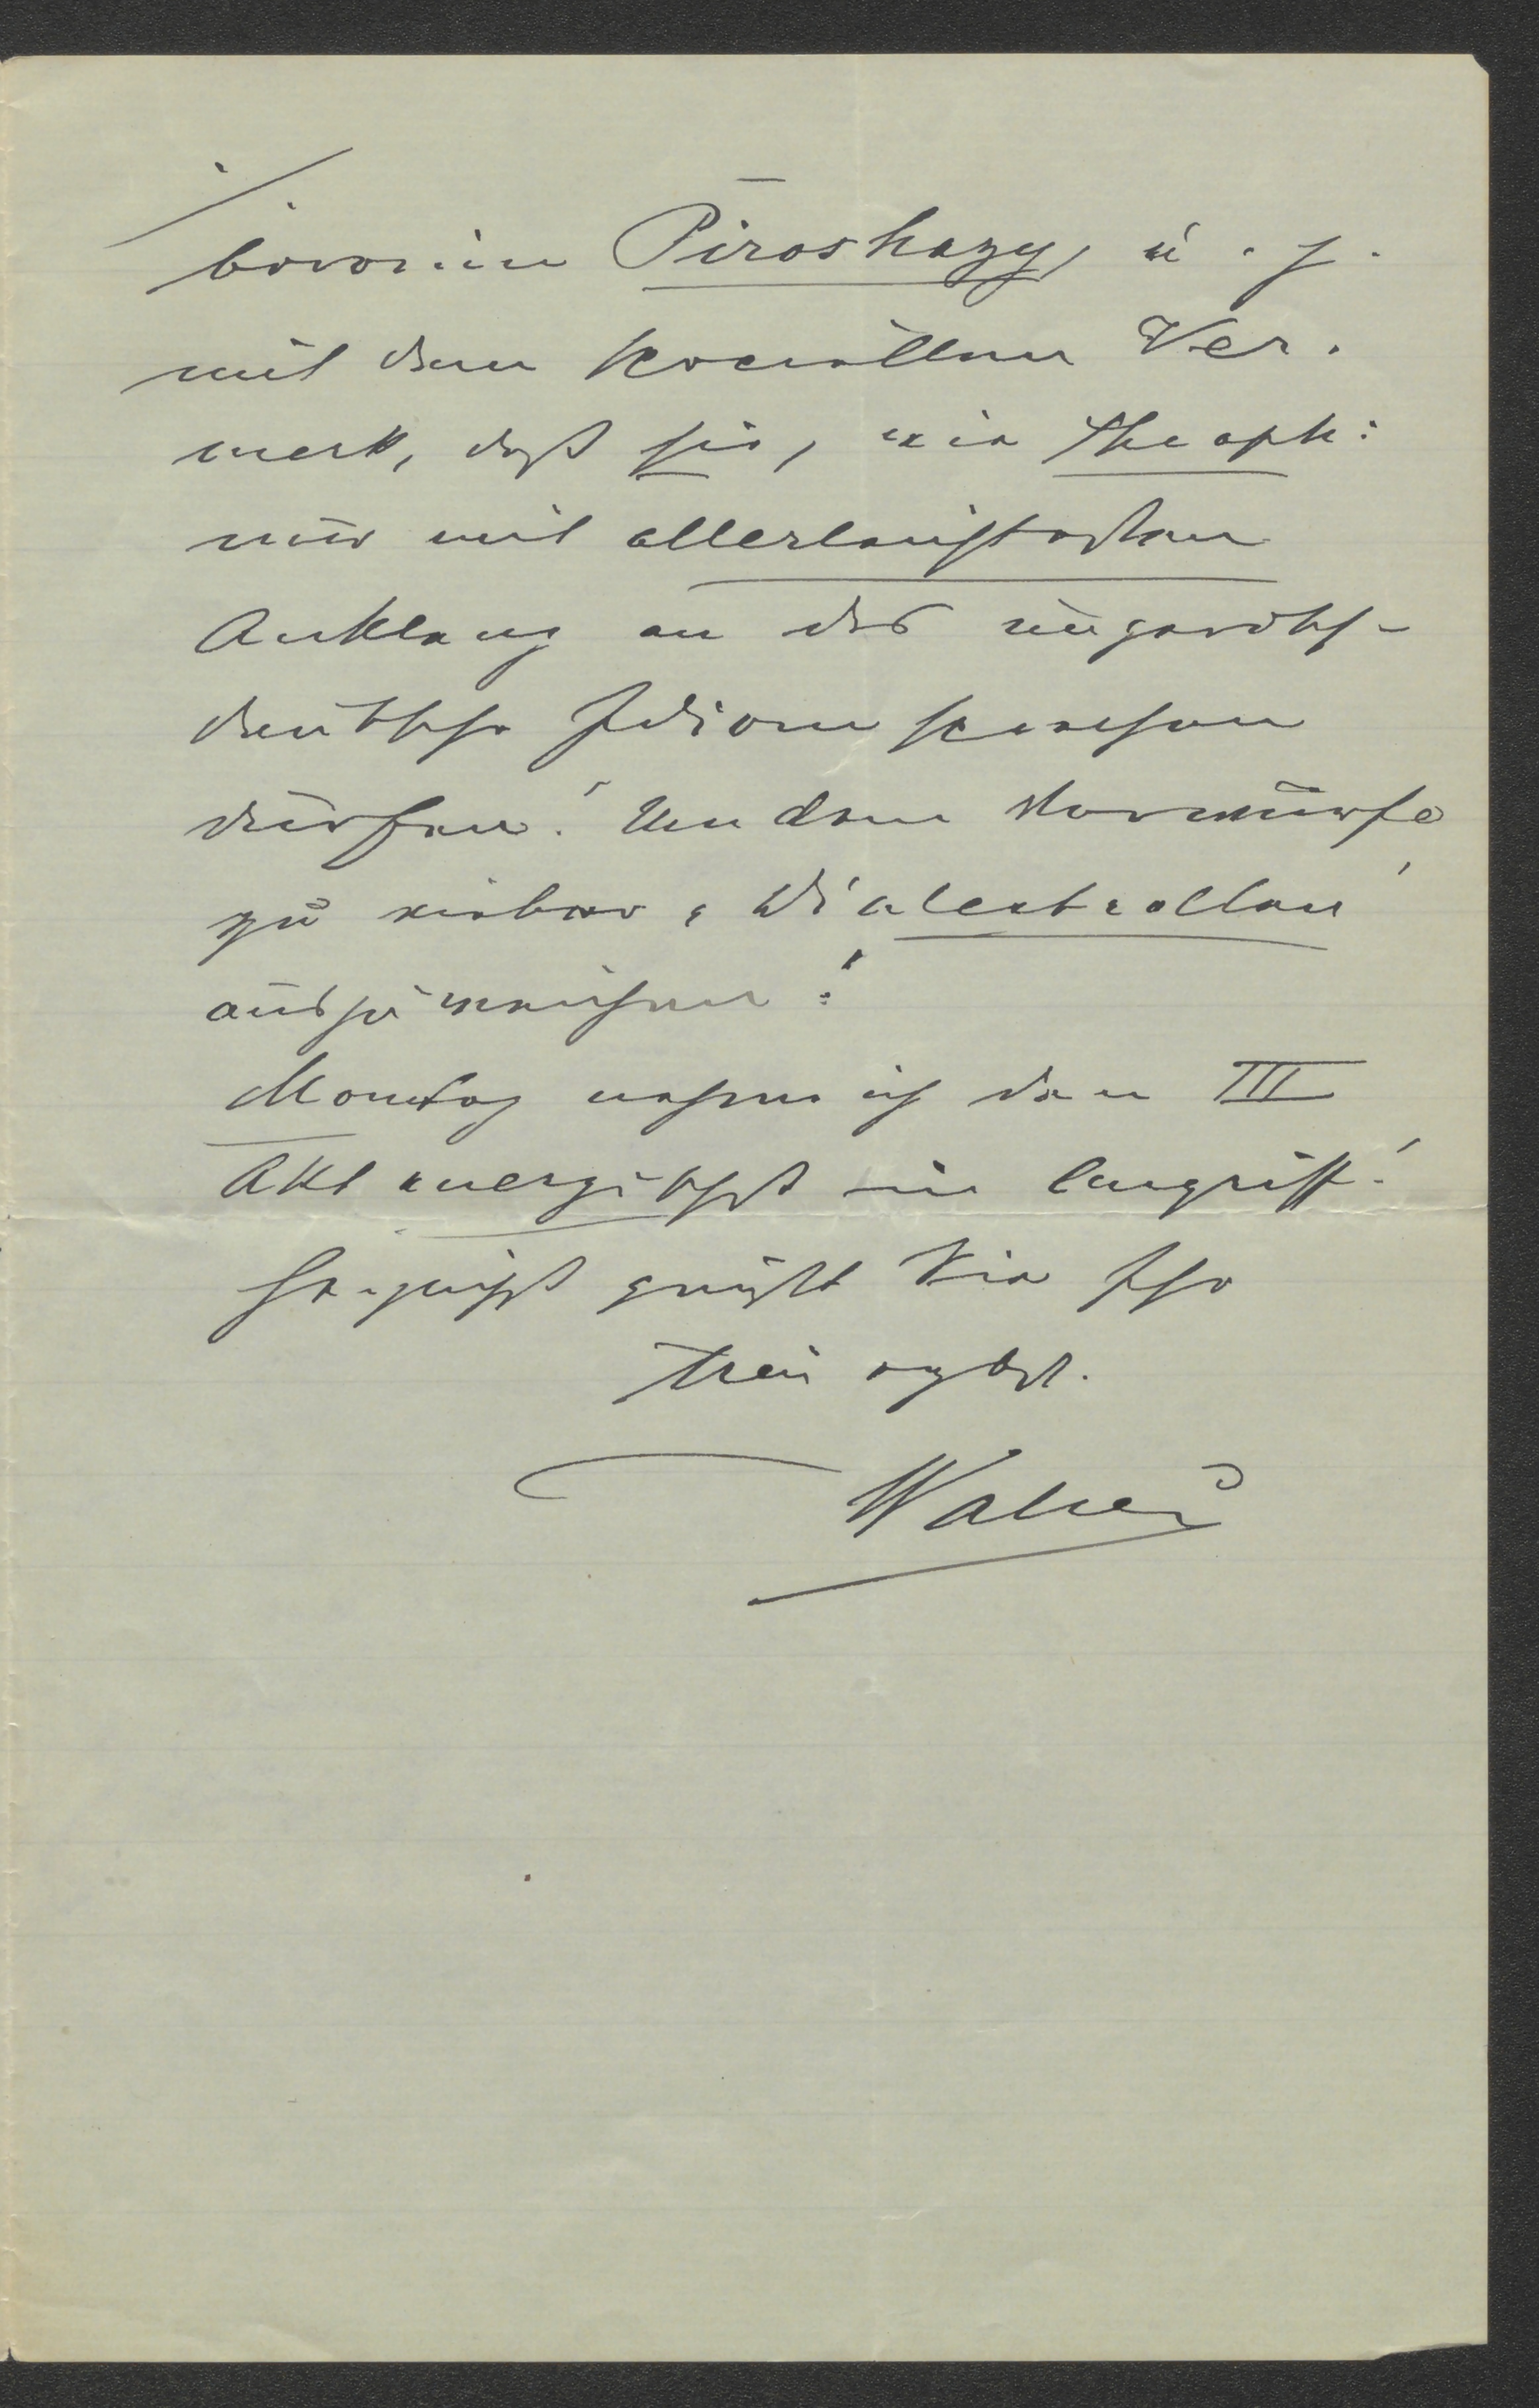 Piroshazy, u. z.
mit dem speciellen Ver-
merk, daß sie, wie Theoph:
nur mit allerleichtesten
Anklang an das ungarisch-
deutsche Idiom sprechen
dürfen! Um dem Vorwurfe
zu vieler „Dialectrollen"
auszuweichen!
Montag nehme ich den III
Akt energischst in Angriff!
Herzlichst grüßt Sie Ihr
treu ergbst.